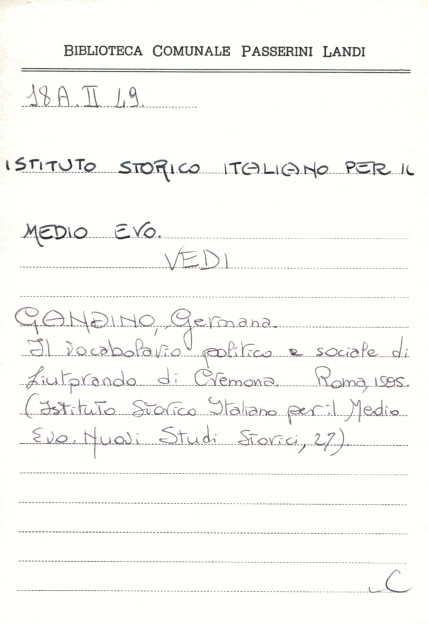 BIBLIOTECA COMUNALE PASSERINI LANDI
18A.II 49.
ISTITUTO STORICO ITALIANO PER IL
MEDIO EVO.
VEDI
GANDINO, Germana.
Il vocabolario politico e sociale di
Liutprando di Cremona. Roma, 1995.
(Istituto Storico Italiano per il Medio
Evo. Nuovi Studi Storici, 27).
C